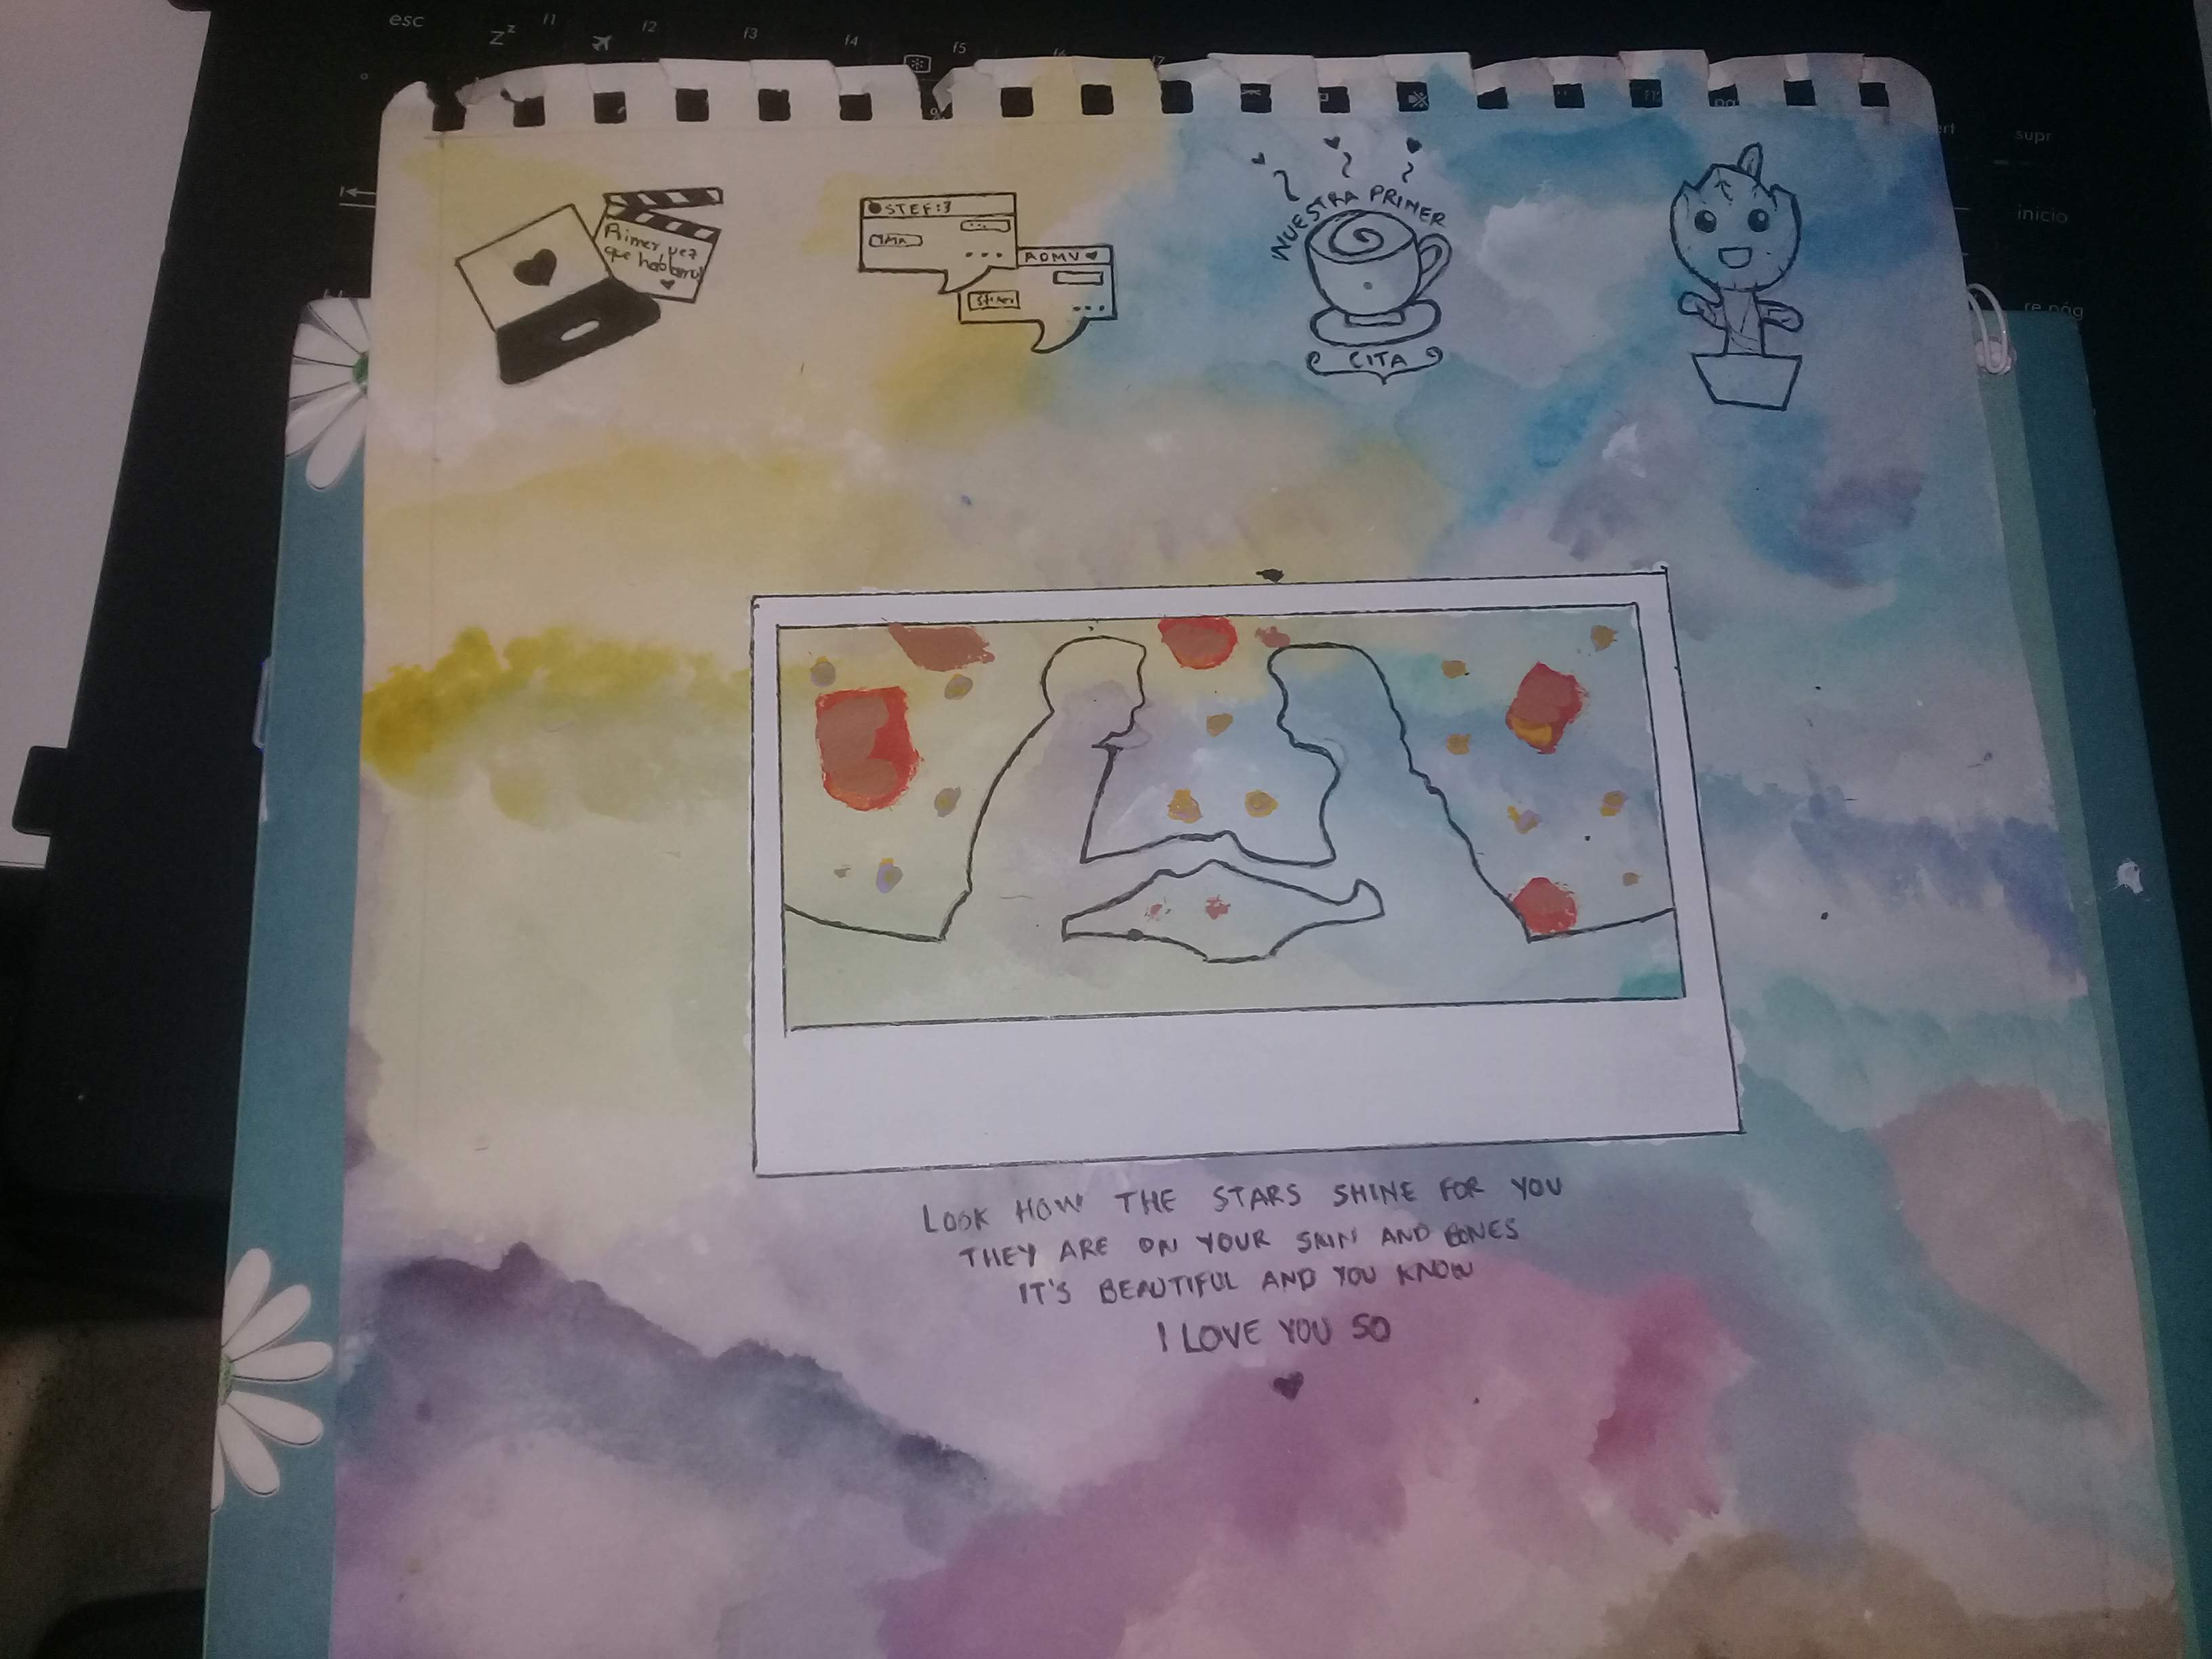 esc
f1
f2
f3
f4
f5
supr
inicio
re pág
Primer vez
que hablamos
STEF:3
AOMV
NUESTRA PRIMER
CITA
LOOK HOW THE STARS SHINE FOR YOU
THEY ARE ON YOUR SKIN AND BONES
IT'S BEAUTIFUL AND YOU KNOW
I LOVE YOU SO